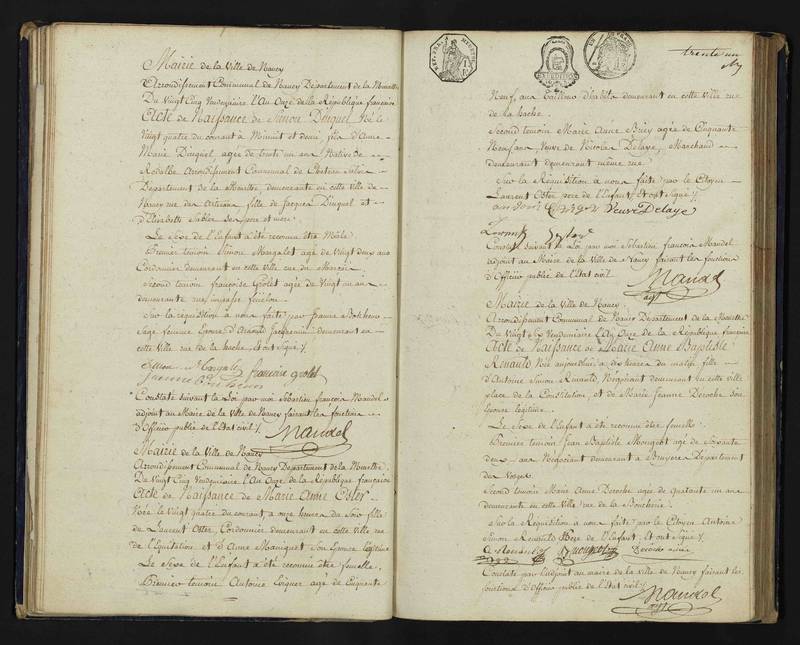 Mairie de la Ville de Nancy
Arrondissement Communal de Nancy Département de la Meurthe
Du Vingt Cinq Vendemiaire l'An Onze de la République française
Acte de Naissance de Simon Dinguel Né le
Vingt quatre du courant à Minuit et demi fils d'Anne
Marie Dinguel agée de trente un ans Native de
Rodalbe Arrondissement Communal de Chateau Salin
Département de la Meurthe, demeurante en cette Ville de
Nancy rue des Artisans fille de Jacques Dinguel et
d'Elisabette ses pere et mere.
Le Sexe de l'Enfant a été reconnu être Mâle.
Premier temoin Simon Margalet agé de Vingt deux ans
Cordonnier demeurant en cette Ville rue du
Second temoin françoise Grolet agée de Vingt un ans
demeurante rue
Sur la réquisition à nous faite par Jeanne
Sage femme Epouse d'Arnould demeurant en
cette Ville rue de la hache, et ont Signé /.
Simon françoise grolet
Jeanne
Constaté suivant la Loi par moi Sébastien françois Mandel
adjoint au Maire de la Ville de Nancy faisant les fonctions
d'Officier public de l'Etat civil /.
Mandel
Mairie de la Ville de Nancy
Arrondissement Communal de Nancy Département de la Meurthe
Du Vingt Cinq Vendemiaire l'An Onze de la République française
Acte de Naissance de Marie Anne Oster
Née le Vingt quatre du courant à onze heures du Soir fille
de Laurent Oster, Cordonnier demeurant en cette Ville rue
de l'Equitation et d'Anne Maniguet Son Epouse légitime
Le Sexe de l'Enfant a été reconnu être femelle.
Premier temoin Antoine agé de Cinquante
trente un
Neuf ans Tailleur d'habits demeurant en cette Ville rue
de la hache.
Second temoin Marie Anne Briey agée de Cinquante
Neuf ans, Veuve de Nicolas Delaye, Marchand
demeurant demeurant même rue
Sur la Réquisition à nous faite par le Citoyen
Laurent Oster pere de l'Enfant, et ont Signé /.
Veuve Delaye
Constaté suivant la Loi par moi Sébastien françois Mandel
adjoint au Maire de la Ville de Nancy faisant les fonctions
d'Officier public de l'Etat civil
Mandel
adjt
Mairie de la Ville de Nancy.
Arrondissement Communal de Nancy Département de la Meurthe
Du Vingt Six Vendemiaire l'An Onze de la République française
Acte de Naissance de Marie Anne Baptiste
Renauld Née aujourd'hui à heures du matin fille
d'Antoine Simon Renauld, Négociant demeurant en cette Ville
place de la Constitution et de Marie Jeanne Deroche Son
Epouse légitime.
Le Sexe de l'Enfant a été reconnu être femelle.
Premier temoin Jean Baptiste Mougeot agé de Soixante
deux ans Négociant demeurant à Bruyere Département
des Vosges
Second temoin Marie Anne Deroche agée de quarante un ans
demeurante en cette Ville rue de la Boucherie.
Sur la Réquisition à nous faite par le Citoyen Antoine
Simon Renauld Pere de l'Enfant, et ont Signé /.
Constaté par l'adjoint au maire de la Ville de Nancy faisant les
fonctions d'Officier public de l'Etat civil /.
Mandel
adjt